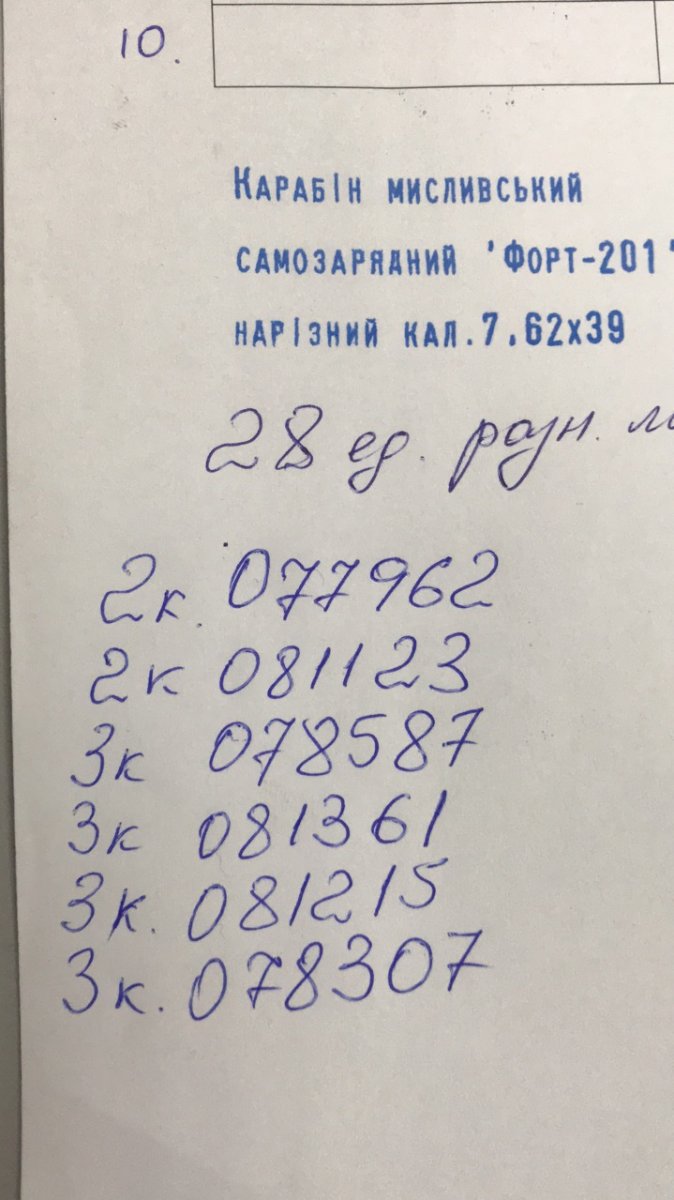 10.
Карабін мисливський
самозарядний "Форт-201"
нарізний кал.7,62х39
28 ед. разн.
2к. 077962
2к 081123
3к 078587
3к 081361
3к. 081215
3к. 078307